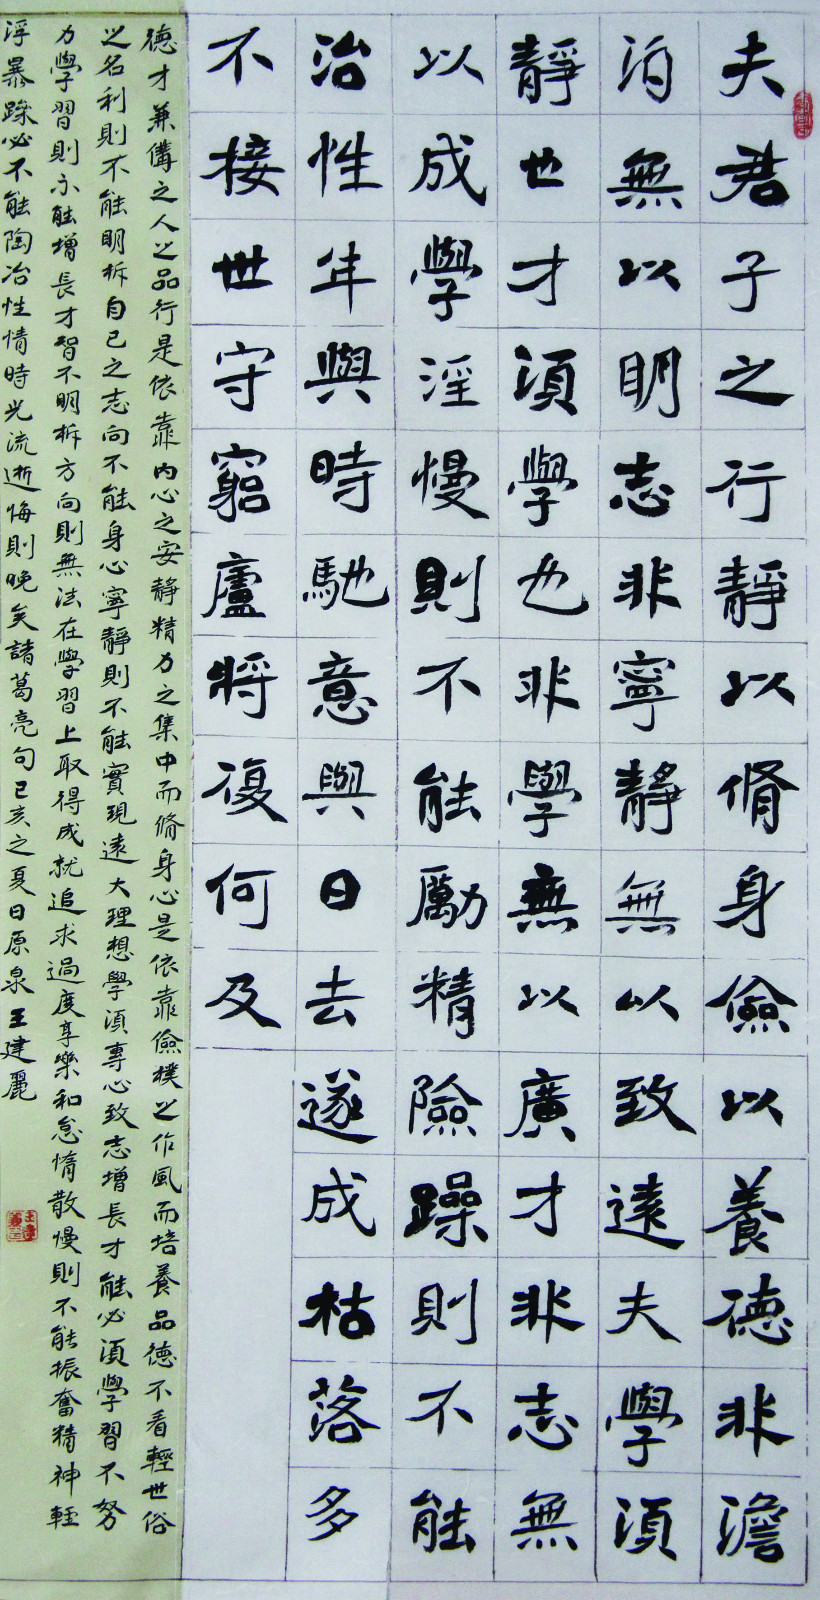 夫君子之行靜以脩身儉以養德非澹
泊無以眀志非寧靜無以致遠夫學湏
靜世才湏學也非學無以廣才非志無
以成學淫慢則不能勵精險躁則不能
治性年與時馳意與日去遂成枯落多
不接世守窮廬將復何及
德才兼備之人之品行是依靠內心之安靜精力之集中而脩身心是依靠儉樸之作風而培養品德不看輕世俗
之名利則不能眀析自己之志向不能身心寧靜則不能實現遠大理想學湏專心致志增長才能必湏學習不努
力學習則不能增長才智不眀析方向則無法在學習上取得成就追求過度享樂和怠惰散慢則不能振奮精神輕
浮暴躁必不能陶冶性情時光流逝悔則晚矣諸葛亮句己亥之夏日原泉王建麗